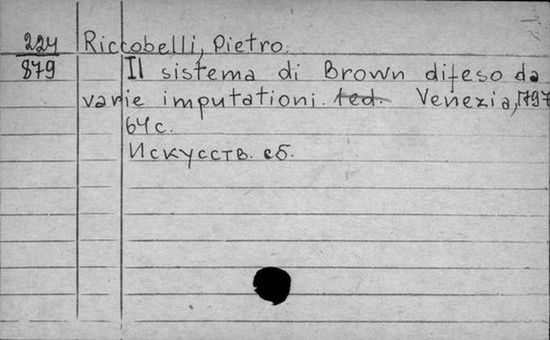 224 Riccobelli, Pietro.
879 Il sistema di Brown difeso da
varie imputationi. ted. Venezia, 1797
64 с.
Искусств. сб.